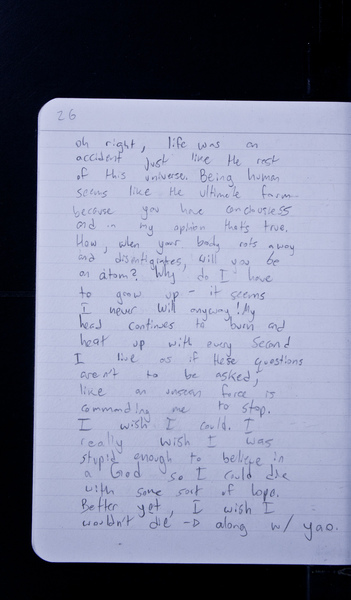 26
oh right, life was an
accident just like the rest
of this universe. Being human
seems like the ultimate form-
because you have conciousness
and in my opinion thats true.
How, when your body rots away
and disentigrates, will you be
an atom? Why do I have
to grow up - it seems
I never will anyway! My
head continues to burn and
heat up with every second
I live as if these questions
aren't to be asked,
like an unseen force is
commanding me to stop.
I wish I could. I
really wish I was
stupid enough to believe in
a God so I could die
with some sort of hope.
Better yet, I wish I
wouldn't die → along w/ yao.